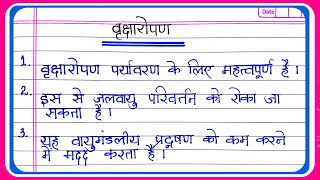 Date
वृक्षारोपण
1. वृक्षारोपण पर्यावरण के लिए महत्त्वपूर्ण है।
2. इस से जलवायु परिवर्तन को रोका जा
सकता है।
3. यह वायुमंडलीय प्रदूषण को कम करने
में मदद करता है।